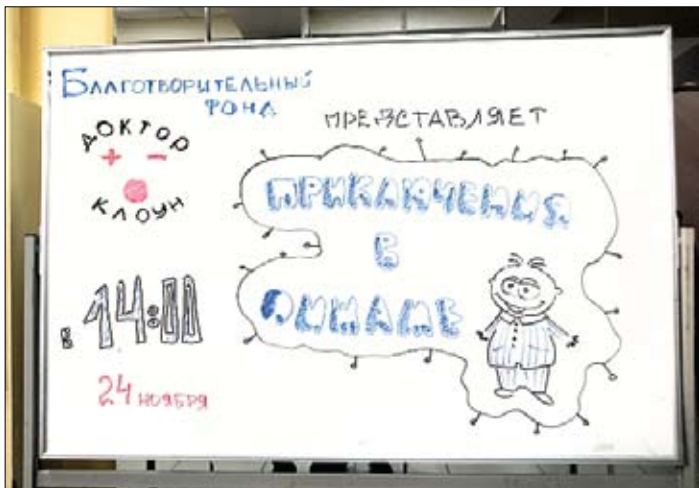 БЛАГОТВОРИТЕЛЬНЫЙ
ФОНД
ДОКТОР
+ –
КЛОУН
ПРЕДСТАВЛЯЕТ
ПРИКЛЮЧЕНИЯ
В
ПИЖАМЕ
в 14:00
24 НОЯБРЯ